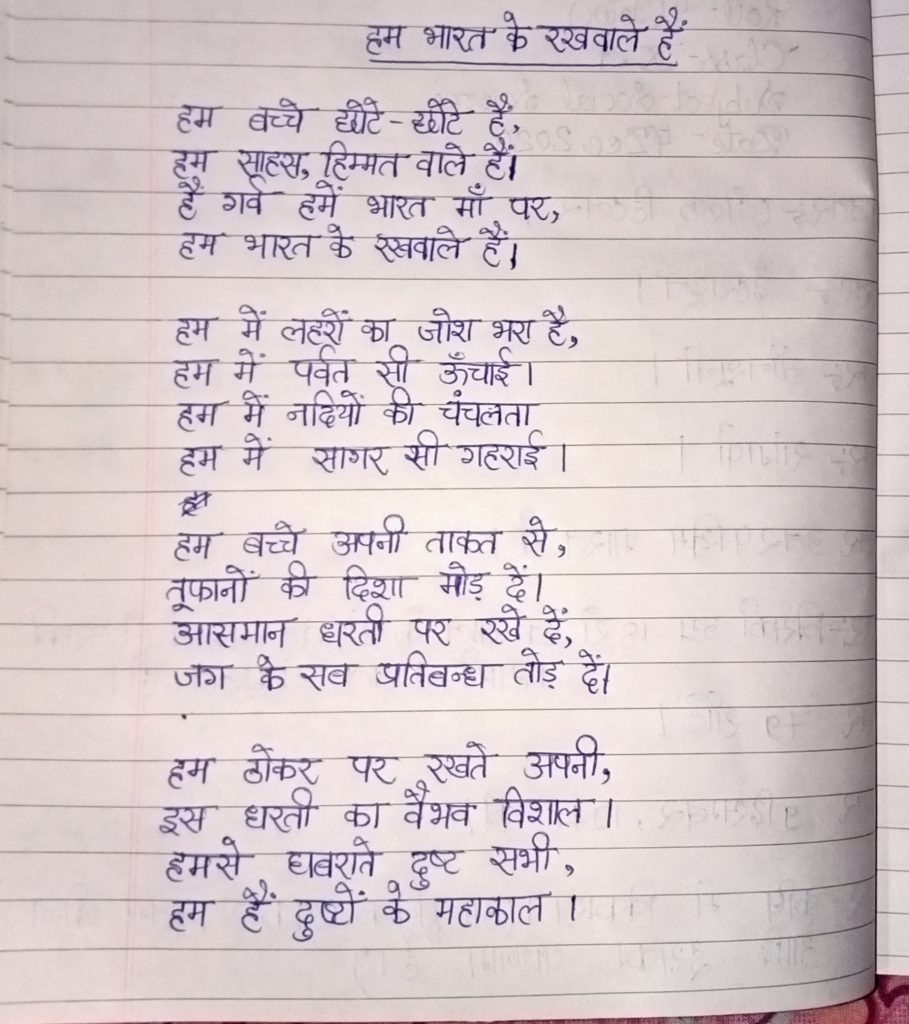 हम भारत के रखवाले हैं
हम बच्चे छोटे-छोटे हैं,
हम साहस, हिम्मत वाले हैं।
है गर्व हमें भारत माँ पर,
हम भारत के रखवाले हैं।
हम में लहरों का जोश भरा है,
हम में पर्वत सी ऊँचाई।
हम में नदियों की चंचलता
हम में सागर सी गहराई।
हम बच्चे अपनी ताकत से,
तूफानों की दिशा मोड़ दें।
आसमान धरती पर रखे दें,
जग के सब प्रतिबन्ध तोड़ दें।
हम ठोकर पर रखते अपनी,
इस धरती का वैभव विशाल।
हमसे घबराते दुष्ट सभी,
हम हैं दुष्टों के महाकाल।